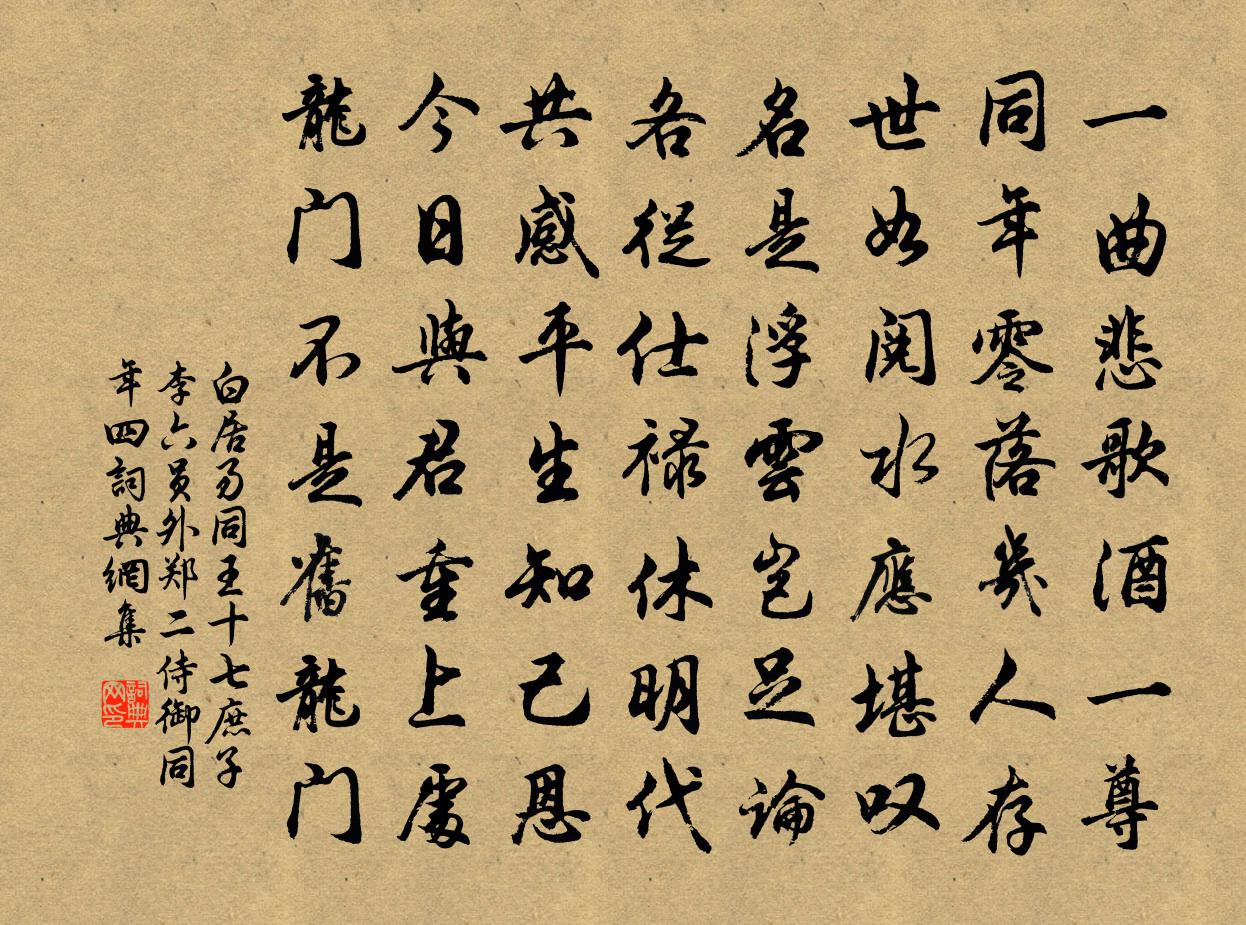 一曲悲歌酒一尊
同年零落幾人存
世如閱水應堪叹
名是浮雲岂足論
各從仕禄休明代
共感平生知己恩
今日與君重上處
龍门不是舊龍门
白居易同王十七庶子
李六員外郑二侍御同
年四詞典網集
詞典
网印